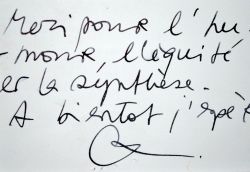 Merci pour l'hu-
-mour, l'équité
er la synthèse.
A bientot j'espè